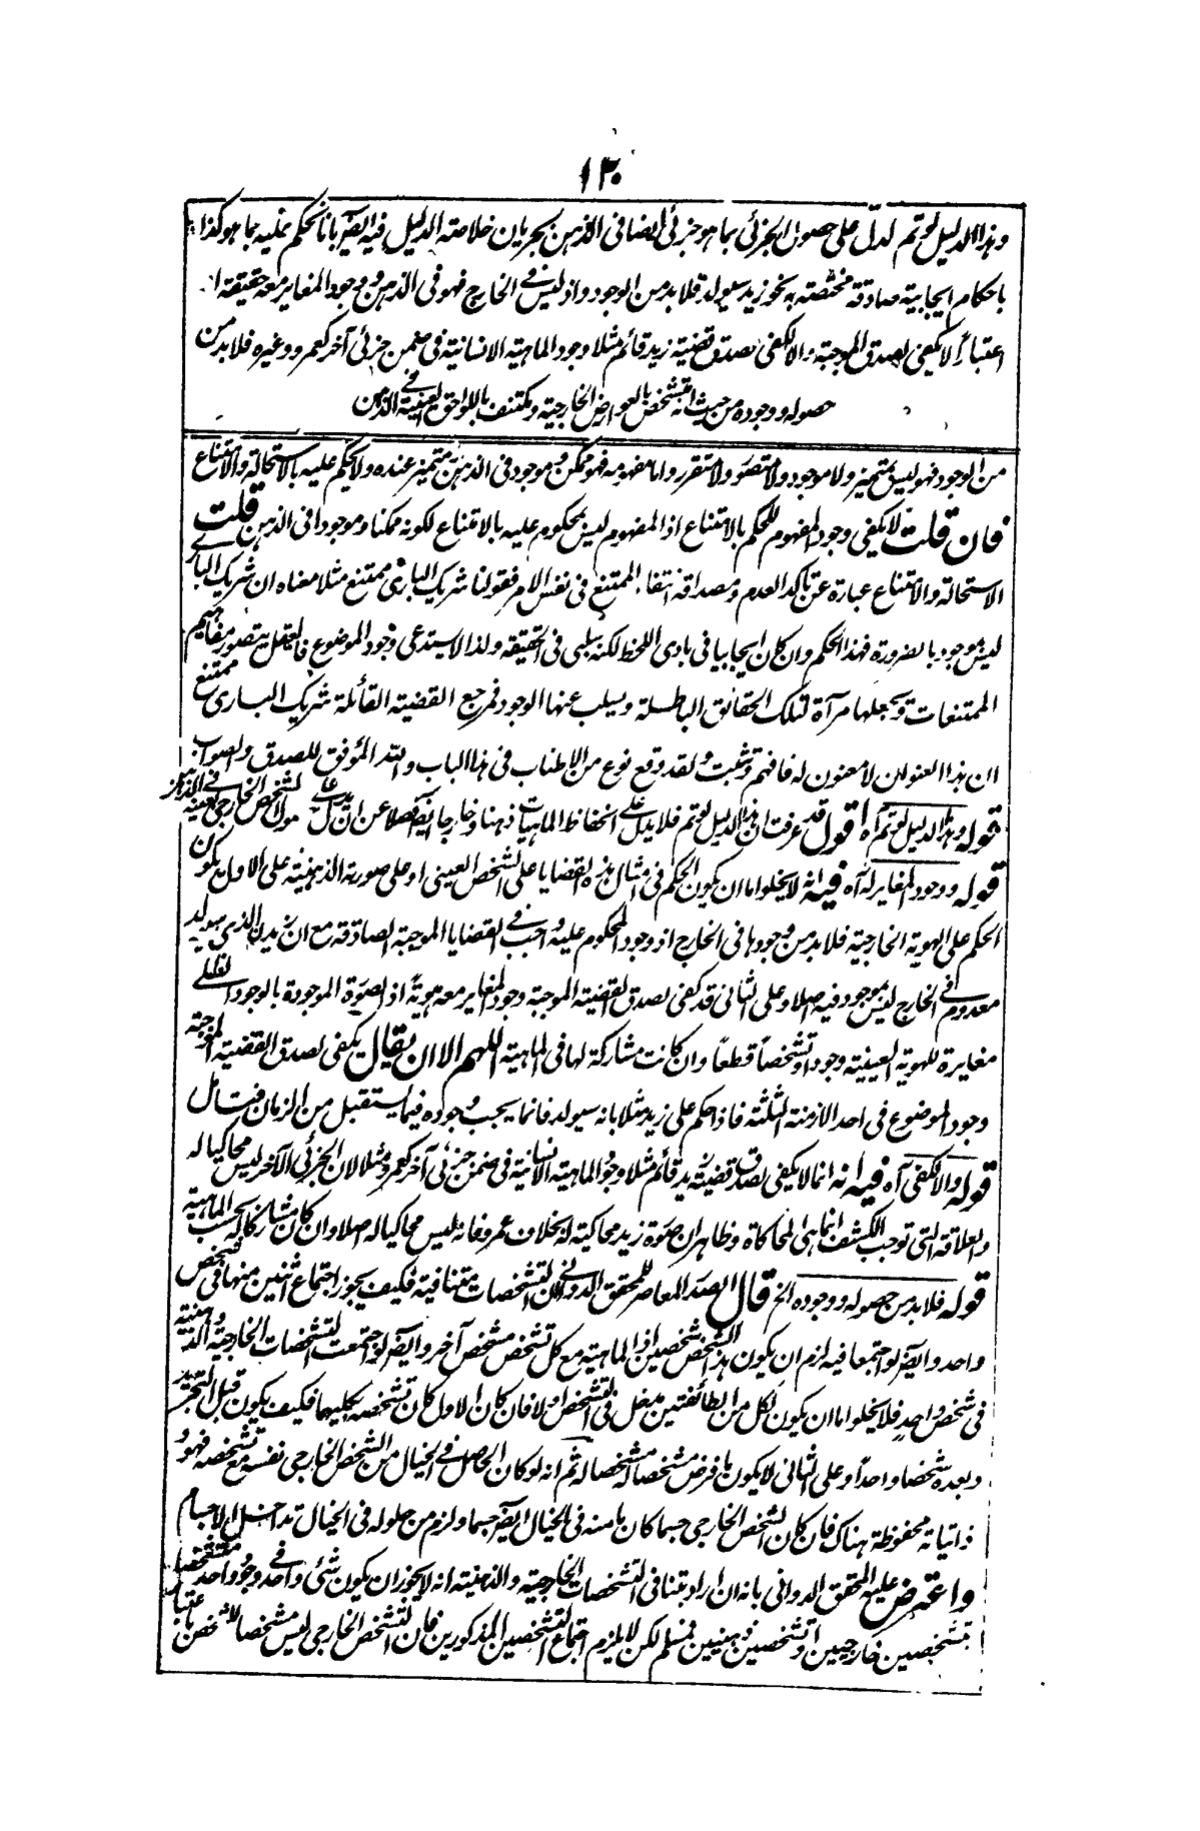 ١٣٠
وهذا الدليل لو تم لدل على حصول الجزئي بما هو جزئي ايضا في الذهن بجريان خلاصته الدليل فيه ايضا بانا نحكم عليه بما هو كذا
باحكام ايجابية صادقة مختصة به نحو زيد سيولد فلا بد من الوجود واذ ليس في الخارج فهو في الذهن ووجود المغاير معه حقيقة او
اعتبارًا لا يكفي لصدق الموجبة والا لكفى لصدق قضية زيد قائم مثلا وجود الماهية الانسانية في ضمن جزئي آخر كعمرو وغيره فلا بد من
حصوله ووجوده من حيث انه متشخص بالعوارض الخارجية ومكتنف باللواحق العينية في الذهن
من الوجود فهو ليس بمتميز ولا موجود ولا متصور ولا متقرر واما مفهومه فهو ممكن وموجود في الذهن متميز عنده ولا يحكم عليه بالاستحالة والامتناع
فان قلت لا يكفي وجود المفهوم للحكم بالامتناع اذ المفهوم ليس بمحكوم عليه بالامتناع لكونه ممكنا وموجودا في الذهن قلت
الاستحالة والامتناع عبارة عن تاكد العدم ومصداقه انتفاء الممتنع في نفس الامر فقولنا شريك الباري ممتنع مثلا معناه ان شريك الباري
ليس بموجود بالضرورة فهذا الحكم وان كان ايجابيا في بادي اللحظ لكنه سلبي في الحقيقة ولذا لا يستدعي وجود الموضوع فالعقل يتصور مفاهيم
الممتنعات ويجعلها مرآة لتلك الحقائق الباطلة ويسلب عنها الوجود فمرجع القضية القائلة شريك الباري ممتنع
ان هذا العنوان لا معنون له فافهم وتثبت ولقد وقع نوع من الاطناب في هذا الباب والله الموفق للصدق والصواب
قوله وهذا الدليل لو تم آه اقول قد عرفت ان هذا الدليل لو تم فلا يدل على انحفاظ الماهيات ذهنا وخارجا ايضا فضلا عن ان يدل على حصول الشخص الخارجي بعينه في الذهن
قوله ووجود المغاير له آه فيه انه لا يخلو اما ان يكون الحكم في امثال هذه القضايا على الشخص العيني او على صورته الذهنية على الاول يكون
الحكم على الهوية الخارجية فلا بد من وجودها في الخارج اذ وجود المحكوم عليه واجب في القضايا الموجبة الصادقة مع ان زيدن الذي سيولد
معدوم في الخارج ليس بموجود فيه اصلا وعلى الثاني قد كفى لصدق القضية الموجبة وجود المغاير معه هوية اذ الصورة الموجودة بالوجود الظلي
مغايرة للهوية العينية وجودا وتشخصًا قطعًا وان كانت مشاركة لها في الماهية اللهم الا ان يقال يكفي لصدق القضية الموجبة
وجود الموضوع في احد الازمنة الثلثة فاذا حكم على زيد مثلا بانه سيولد فانما يجب وجوده فيما يستقبل من الزمان فتامل
قوله والا لكفى آه فيه انه انما لا يكفي لصدق قضية زيد قائم مثلا وجود الماهية الانسانية في ضمن جزئي آخر كعمرو مثلا لان الجزئي الآخر ليس محاكيا له
والعلاقة التي توجب الكشف انما هي المحاكاة وظاهر ان صورة زيد محاكية له بخلاف عمرو فانه ليس محاكيا له اصلا وان كان مشاركا له بحسب الماهية
قوله فلا بد من حصوله ووجوده الخ قال الصدر المعاصر للمحقق الدواني ان التشخصات متنافية فكيف يجوز اجتماع اثنين منها في شخص
واحد وايضا لو اجتمعا فيه لزم ان يكون هذا الشخص شخصين اذ الماهية مع كل تشخص شخص آخر وايضا لو اجتمعت التشخصات الخارجية والذهنية
في شخص واحد فلا يخلو اما ان يكون لكل من الطائفتين مدخل في التشخص او لا فان كان الاول كان تشخصه بكليهما فكيف يكون قبل التجرد
وبعده شخصا واحدًا وعلى الثاني لا يكون ما فرض مشخصا له مشخصا له ثم انه لو كان الحاصل في الخيال من الشخص الخارجي نفسه مع تشخصه فهو
ذاتياته محفوظة هناك فان كان الشخص الخارجي جسما كان ما منه في الخيال ايضا جسما ولزم من حلوله في الخيال تداخل الاجسام
واعترض عليه المحقق الدواني بانه ان اراد بتنافي التشخصات الخارجية والذهنية انه لا يجوز ان يكون شيء واحد في وجود واحد متشخصا
بتشخصين خارجيين او تشخصين ذهنيين فمسلم لكن لا يلزم اجتماع التشخصين المذكورين فان التشخص الخارجي ليس مشخصا للشخص باعتبار